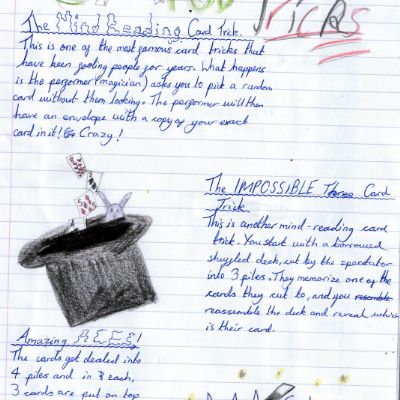 TRICKS
The Mind Reading Card Trick.
This is one of the most famous card tricks that
have been fooling people for years. What happens
is the performer (magician) asks you to pick a random
card without them looking. The performer will then
have an envelope with a copy of your exact
card in it! Crazy!
The IMPOSSIBLE Three Card
Trick
This is another mind-reading card
trick. You start with a borrowed
shuffled deck, cut by the spectator
into 3 piles. They memorize one of the
cards they cut to, and you resemble
reassemble the deck and reveal which
is their card.
Amazing ACES!
The cards get dealed into
4 piles and in each,
3 cards are put on top